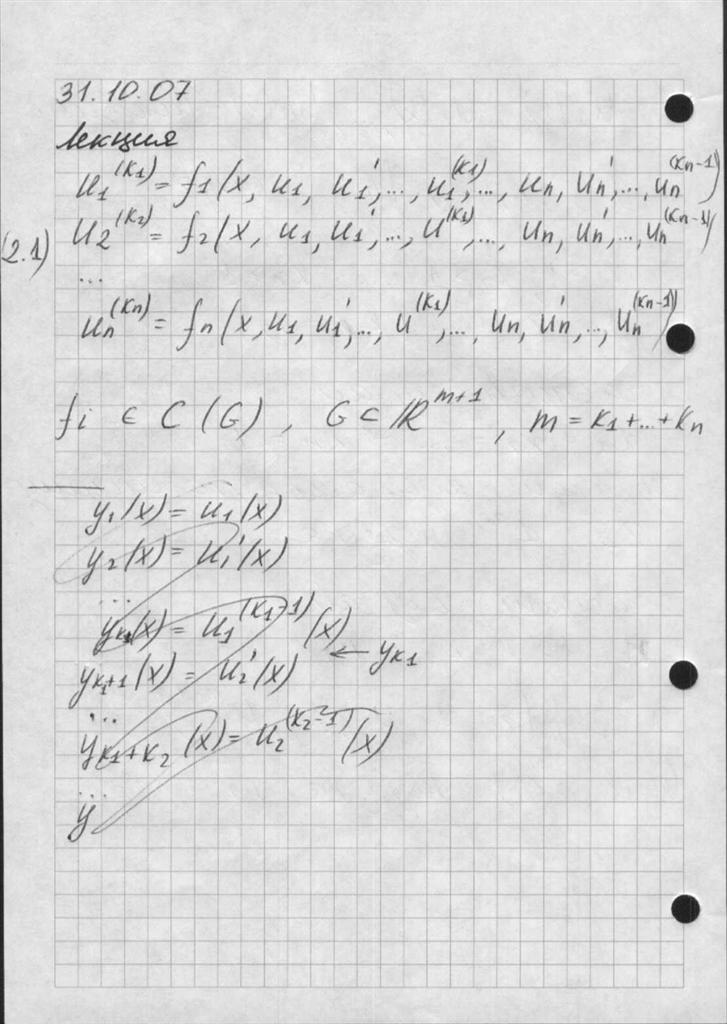 31.10.07
лекция
u₁^(k₁) = f₁(x, u₁, u₁', ..., u₁^(k₁), ..., uₙ, uₙ', ..., uₙ^(kₙ-1))
(2.1) u₂^(k₂) = f₂(x, u₁, u₁', ..., u^(k₁), ..., uₙ, uₙ', ..., uₙ^(kₙ-1))
...
uₙ^(kₙ) = fₙ(x, u₁, u₁', ..., u^(k₁), ..., uₙ, uₙ', ..., uₙ^(kₙ-1))
fi ∈ C(G), G ⊂ ℝ^(m+1), m = k₁+...+kₙ
y₁(x) = u₁(x)
y₂(x) = u₁'(x)
...
y_k₁(x) = u₁^(k₁-1)(x)
y_k₁+1(x) = u₂'(x) ← y_k₁
...
y_k₁+k₂(x) = u₂^(k₂-1)(x)
...
y